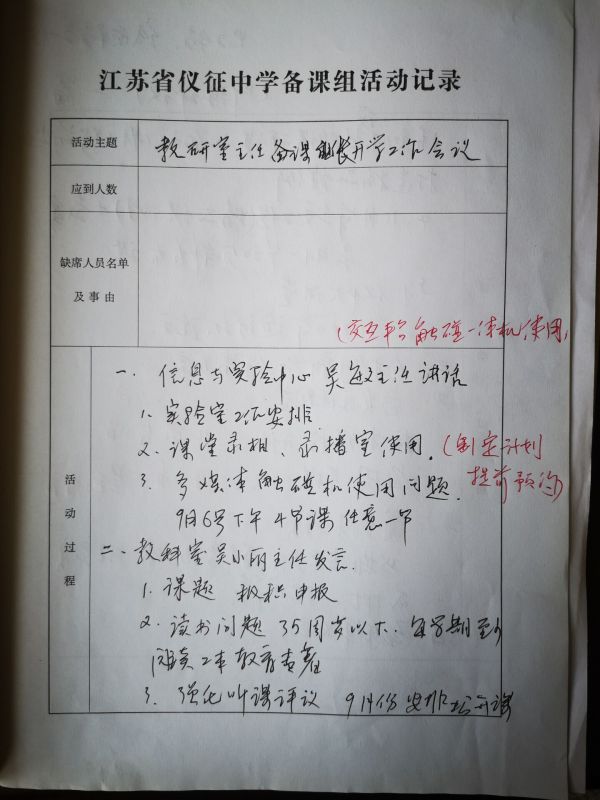 江苏省仪征中学备课组活动记录
活动主题
教研室主任备课组长开学工作会议
应到人数
缺席人员名单
及事由
(交互平台触碰一体机使用)
活动过程
一、信息与实验中心 吴敏主任讲话
1. 实验室工作安排
2. 课堂录相、录播室使用。(制定计划
提前预约)
3. 多媒体触碰机使用问题.
9月6号下午4节课任意一节
二、教科室吴小丽主任发言.
1. 课题 积极申报
2. 读书问题 35周岁以下.每学期至少
阅读2本教育专著
3. 强化听课评议 9月份安排公开课